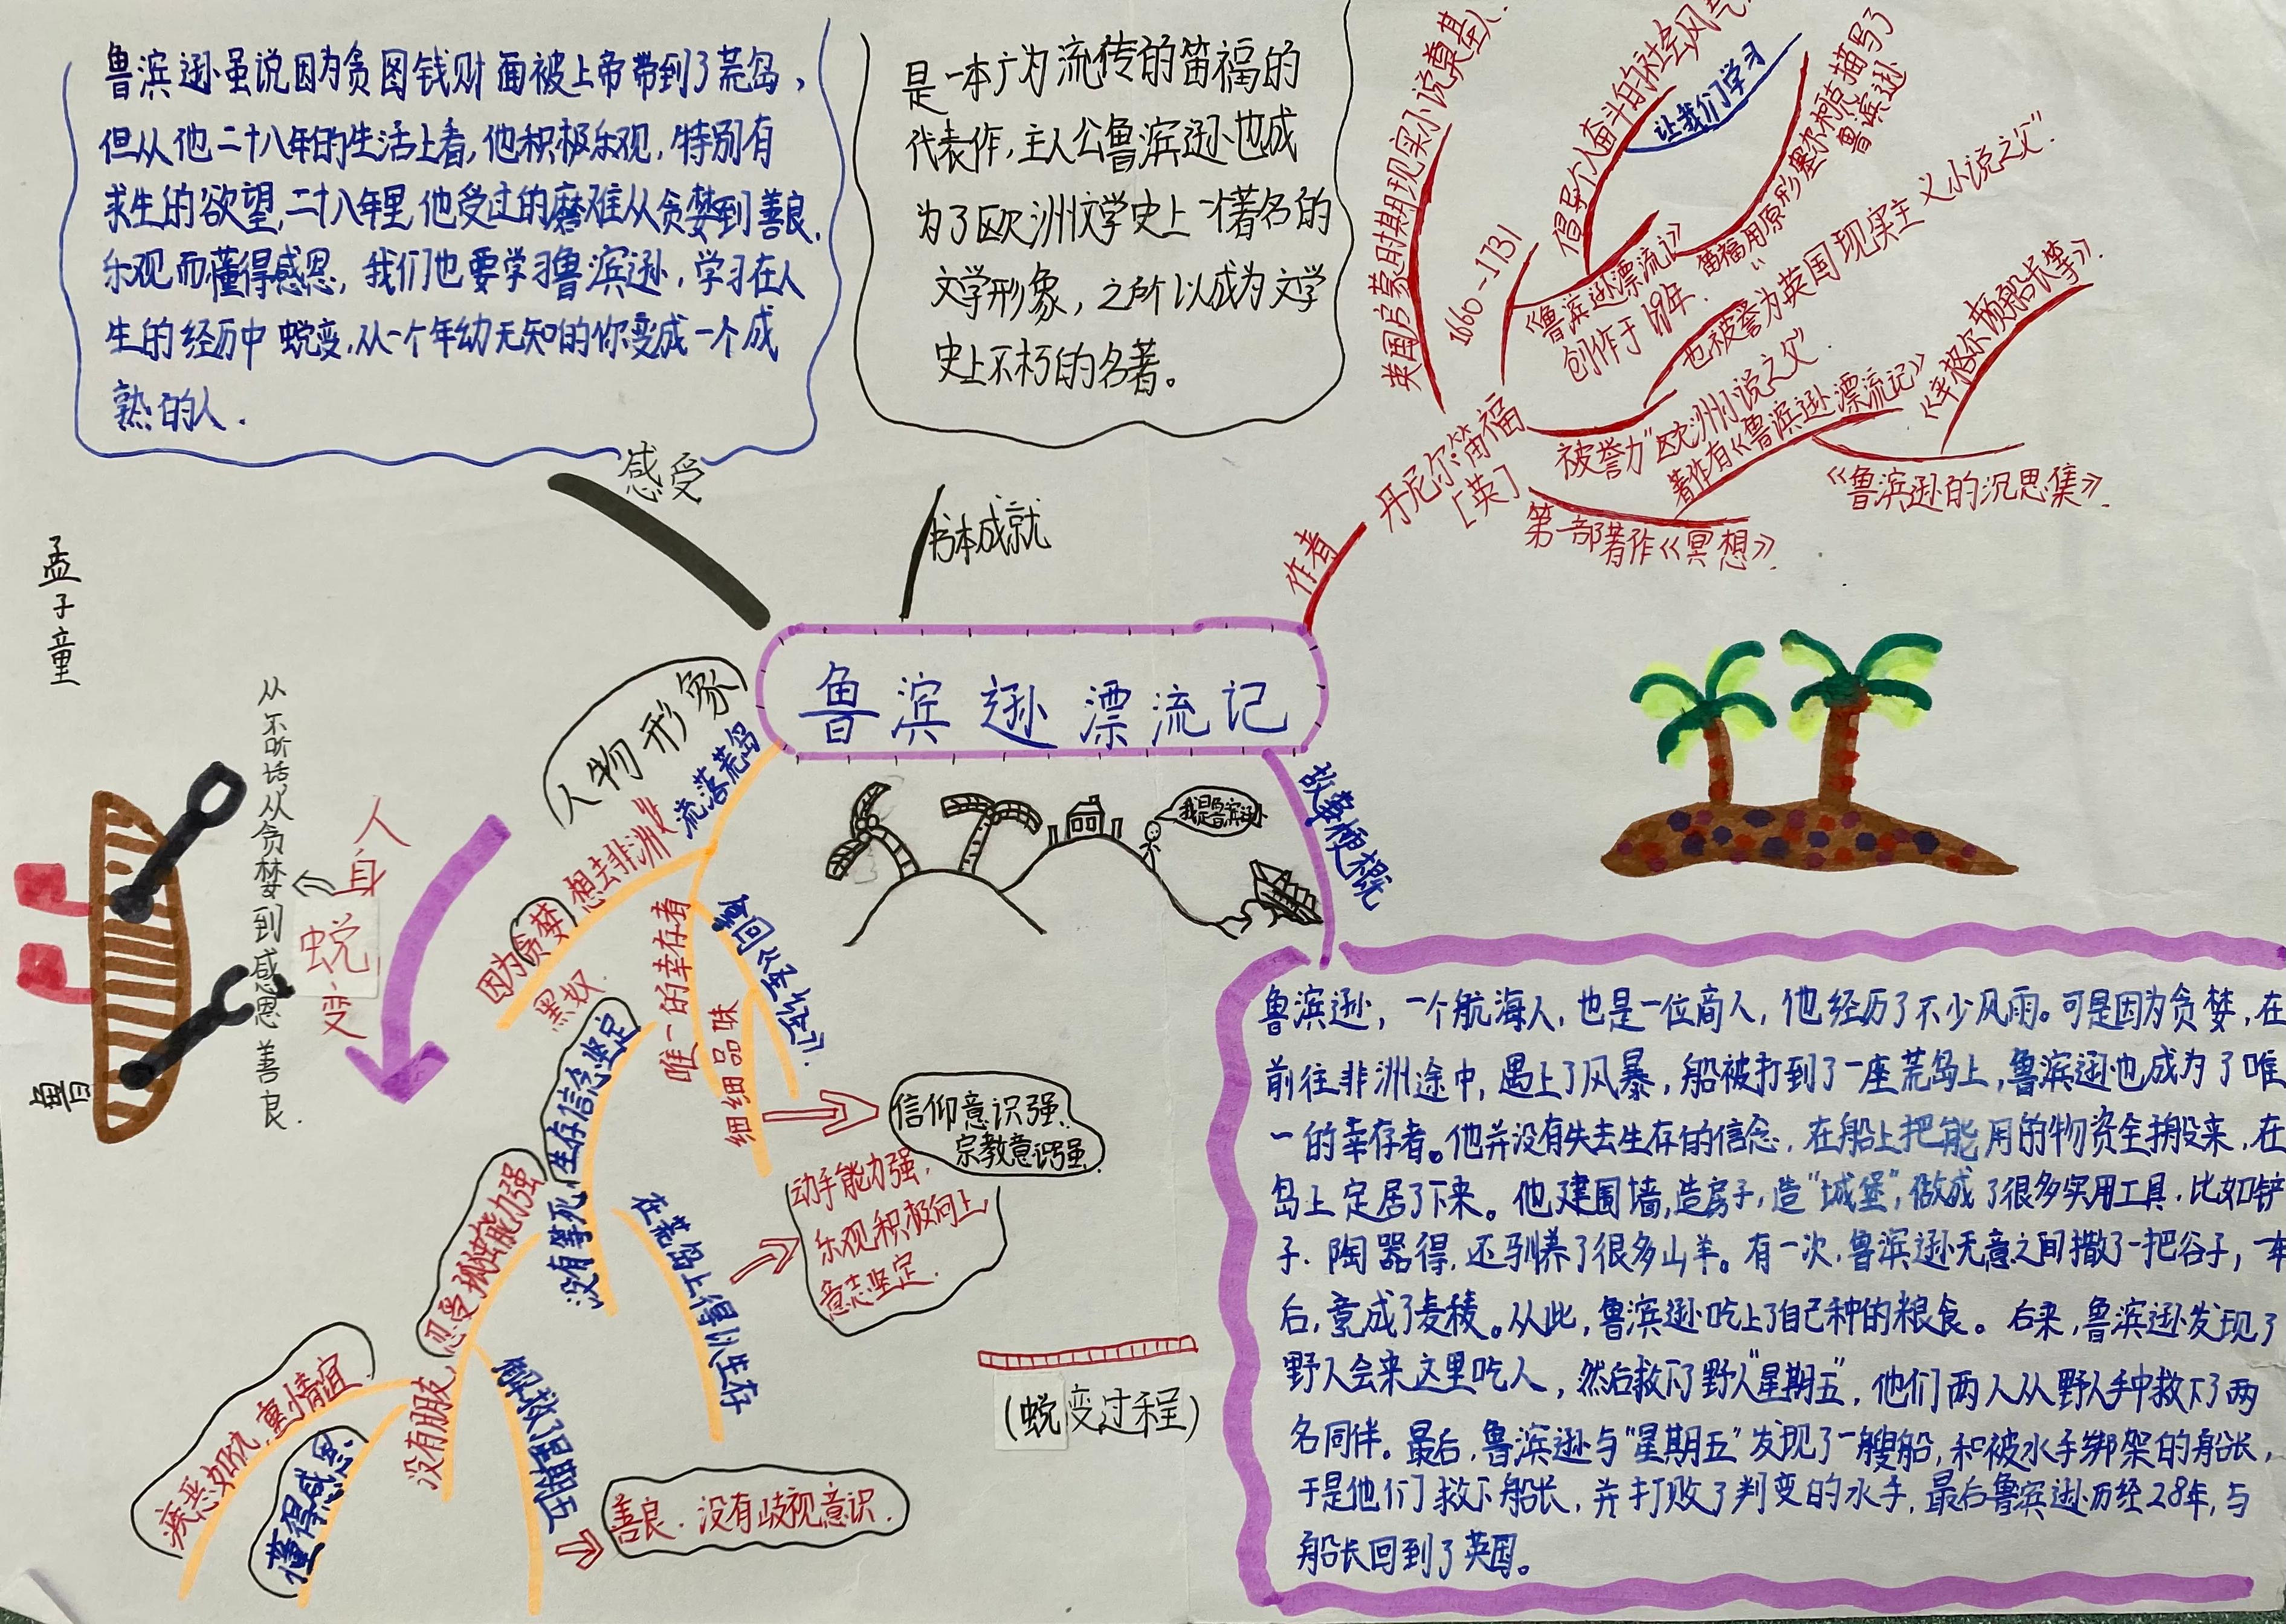 鲁滨逊虽说因为贪图钱财而被上帝带到了荒岛,
但从他二十八年的生活上看,他积极乐观,特别有
求生的欲望,二十八年里,他受过的磨难从贪婪到善良,
乐观而懂得感恩,我们也要学习鲁滨逊,学习在人
生的经历中蜕变,从一个年幼无知的你变成一个成
熟的人.
感受
是一本广为流传的笛福的
代表作,主人公鲁滨逊也成
为了欧洲文学史上一个著名的
文学形象,之所以成为文学
史上不朽的名著。
书本成就
作者
丹尼尔·笛福
[英]
英国启蒙时期现实小说奠基人.
1660-1731
《鲁滨逊漂流记》
倡导个人奋斗的社会风气
让我们学习
笛福用原形塞尔柯克描写了
鲁滨逊
也被誉为英国现实主义小说之父".
被誉为"欧洲小说之父".
著作有《鲁滨逊漂流记》
《辛格尔顿船长等》.
《鲁滨逊的沉思集》.
第一部著作《冥想》.
孟子童
鲁滨逊漂流记
人物形象
流落荒岛
想去非洲
因为贪婪
黑奴.
唯一的幸存者
细细品味
信仰意识强、
宗教意识强.
生存信念坚定
没有等死
在荒岛上得以生存
动手能力强,
乐观积极向上,
意志坚定.
忍受孤独能力强
没有朋友
解救星期五
善良.没有歧视意识.
疾恶如仇,重情谊
懂得感恩.
人
自
蜕
变
从不听话,从贪婪到感恩善良.
鲁
(蜕变过程)
我是鲁滨逊
故事梗概
鲁滨逊,一个航海人,也是一位商人,他经历了不少风雨。可是因为贪婪,在
前往非洲途中,遇上了风暴,船被打到了一座荒岛上,鲁滨逊也成为了唯
一的幸存者。他并没有失去生存的信念,在船上把能用的物资全搬来,在
岛上定居了下来。他建围墙,造房子,造"城堡",做成了很多实用工具.比如铲
子.陶器得,还驯养了很多山羊。有一次,鲁滨逊无意之间撒了一把谷子,一年
后,竟成了麦稜。从此,鲁滨逊吃上了自己种的粮食。后来,鲁滨逊发现了
野人会来这里吃人,然后救下了野人"星期五",他们两人从野人手中救下了两
名同伴。最后,鲁滨逊与"星期五"发现了一艘船,和被水手绑架的船长,
于是他们救下船长,并打败了判变的水手,最后鲁滨逊历经28年,与
船长回到了英国。